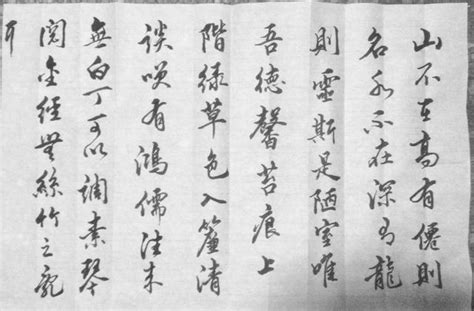 山不在高有僊則
名水不在深有龍
則靈斯是陋室唯
吾德馨苔痕上
階綠草色入簾清
談咲有鴻儒往來
無白丁可以調素琴
閱金經無絲竹之亂
耳